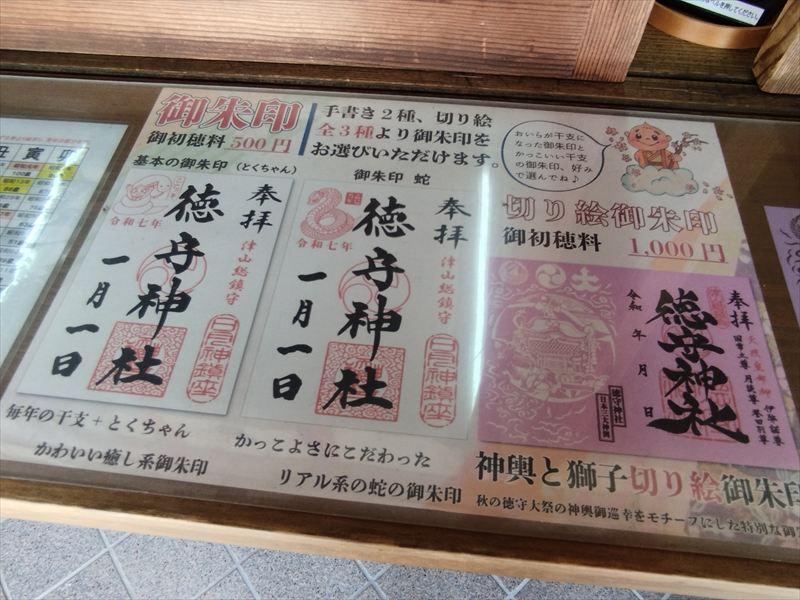 御朱印
御初穂料500円
手書き2種、切り絵
全3種より御朱印を
お選びいただけます。
おいらが干支に
なった御朱印と
かっこいい干支
の御朱印、好み
で選んでね♪
基本の御朱印（とくちゃん）
奉拝
津山総鎮守
徳守神社
令和七年
一月一日
毎年の干支+とくちゃん
かわいい癒し系御朱印
御朱印 蛇
奉拝
津山総鎮守
徳守神社
令和七年
一月一日
かっこよさにこだわった
リアル系の蛇の御朱印
切り絵御朱印
御初穂料 1,000円
奉拝
徳守神社
令和 年 月 日
徳守神社
日本三大神輿
神輿と獅子切り絵御朱印
秋の徳守大祭の神輿御巡幸をモチーフにした特別な御
丑 寅 卯